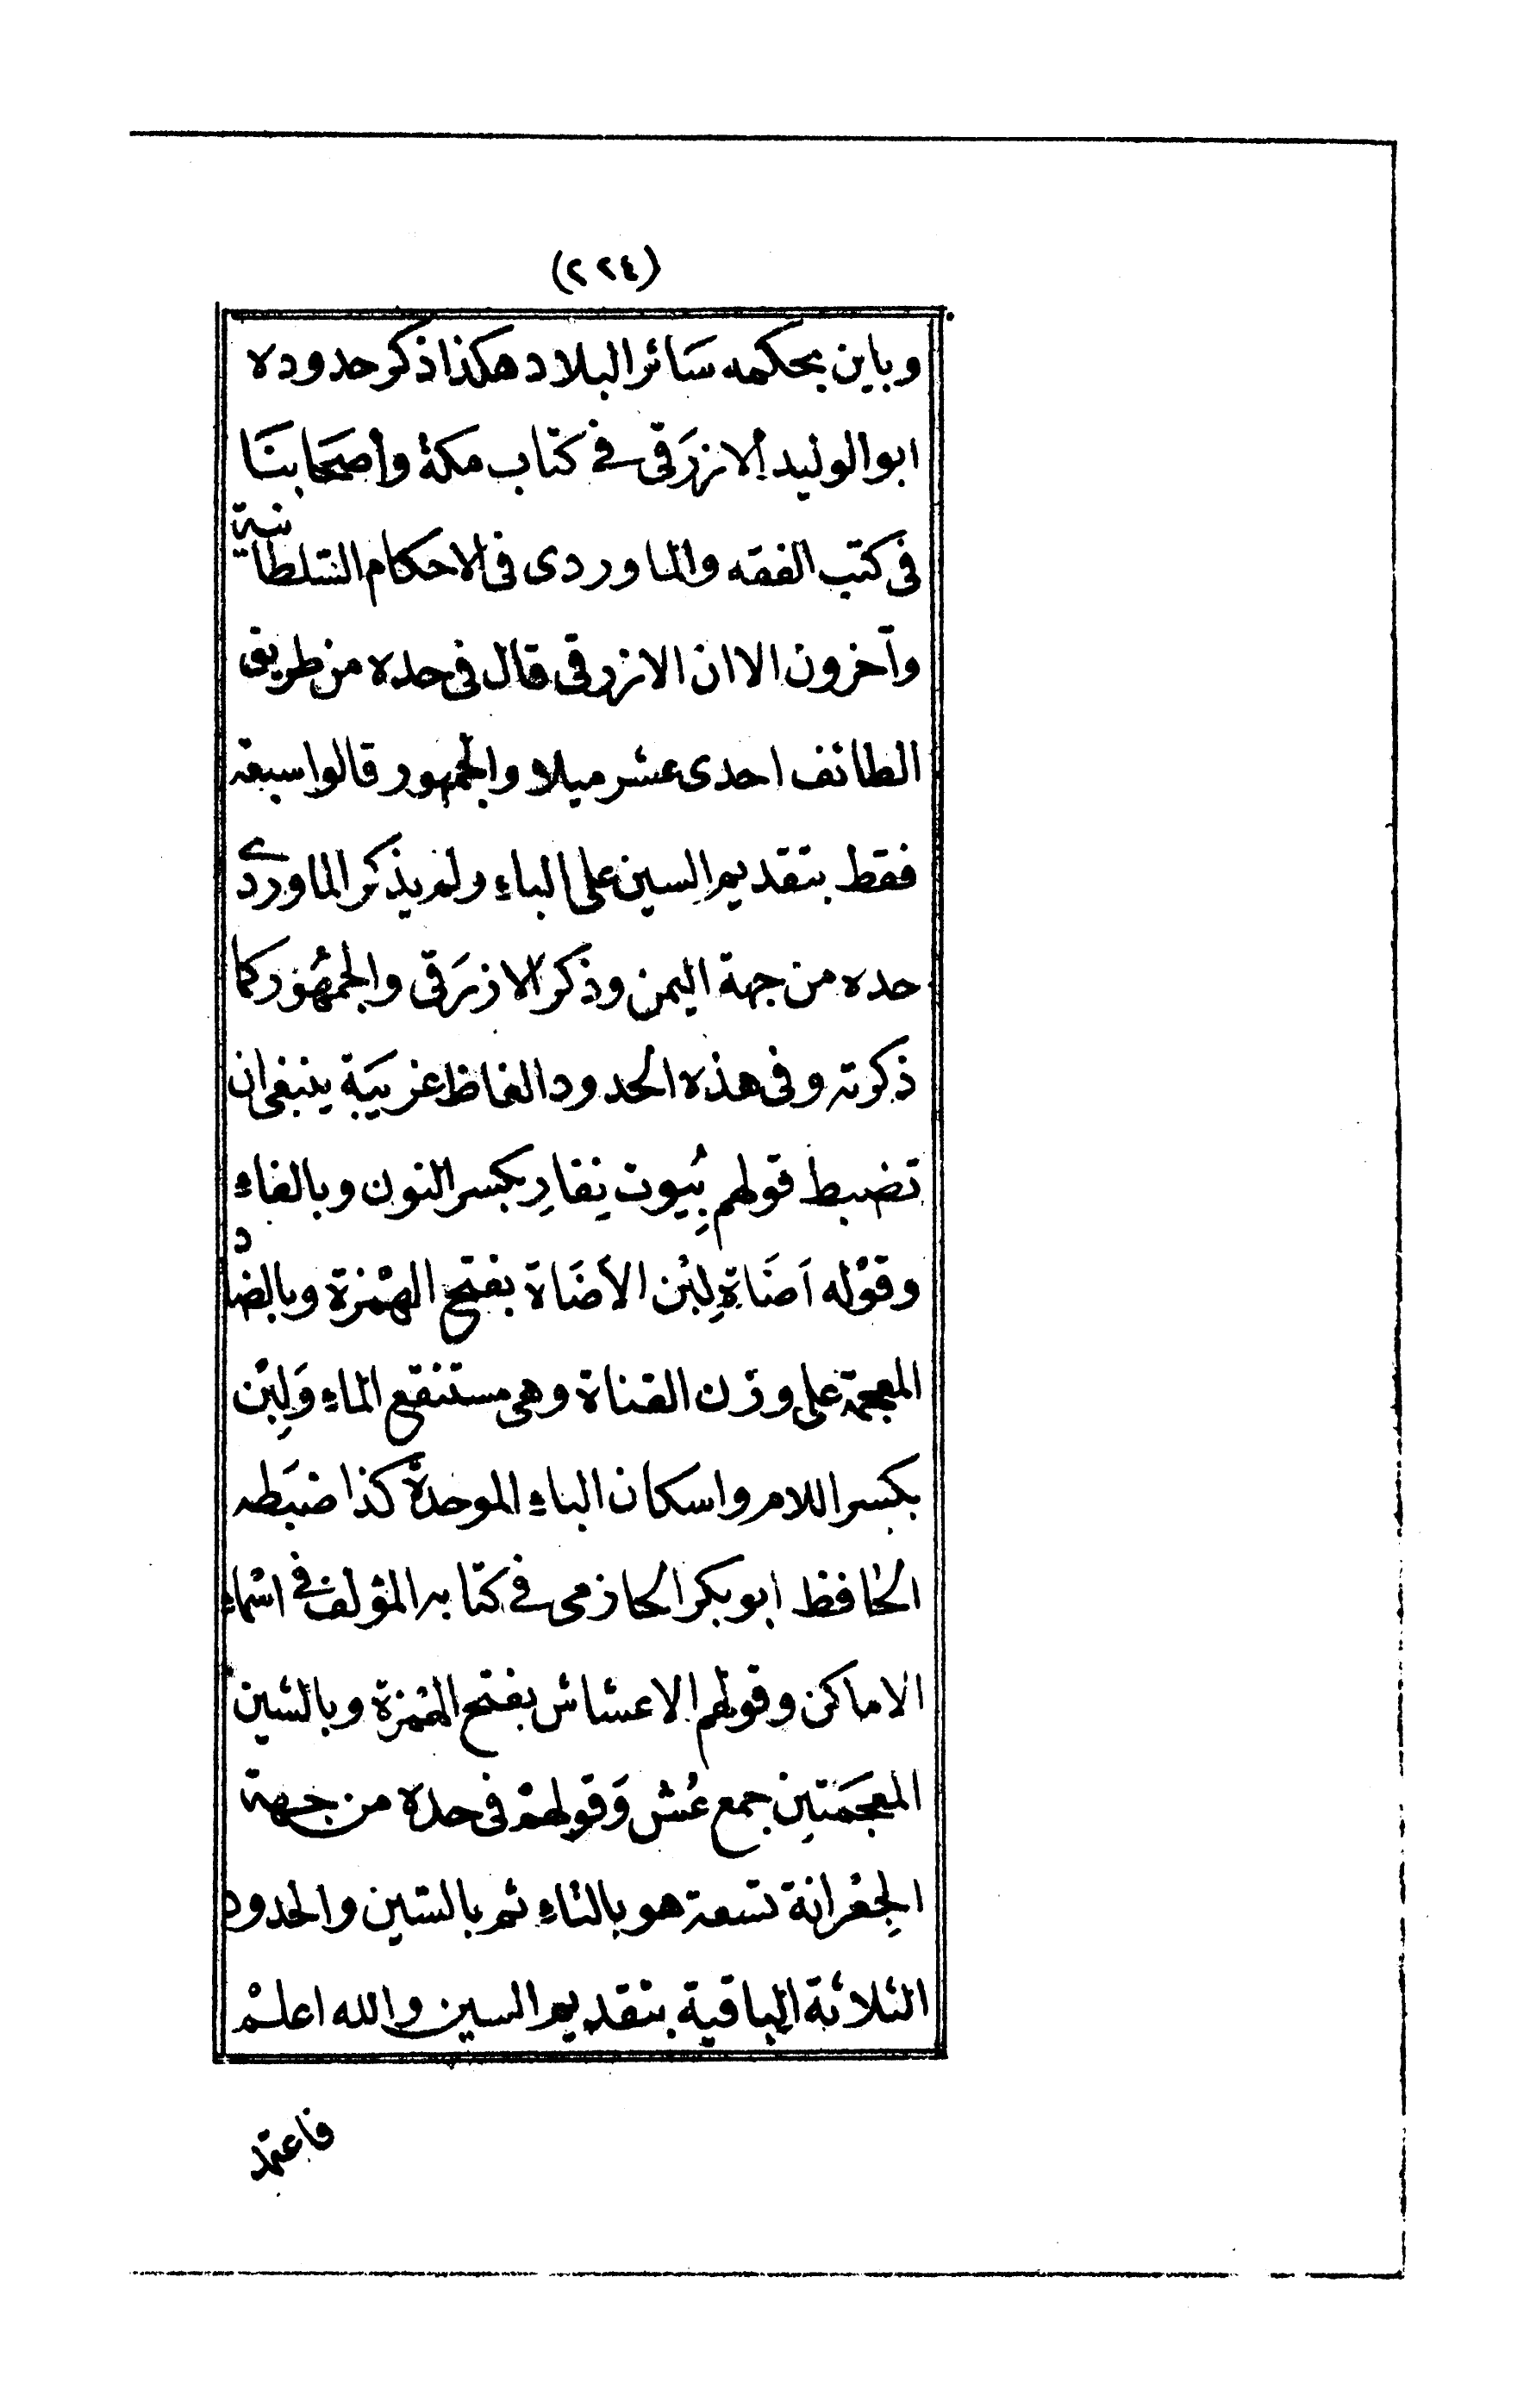 (٢٢٤)
وباين بحكمه سَائر البلاد هكذا ذكر حدوده
ابو الوليد الازرَقى فى كتاب مكة وأصحَابنَا
فى كتب الفقه والماوردى فى الاحكام السّلطانية
وآخرون الا ان الازرقى قال فى حده من طريق
الطائف احدى عشر ميلا والجمهور قالوا سبعة
فقط بتقديم السين على الباء ولم يذكر الماوردى
حده من جهة اليمن وذكر الازرَقى والجمهُور كما
ذكرته وفى هذه الحدود الفاظ غريبَة ينبغى ان
تضبط قولهم بُيوت نِفارِ بكسر النون وبالفاءِ
وقوْله اَضَاة لِبْن الأضَاة بفتح الهمْزة وبالضاد
المعجمة على وزن القناة وهى مستنقع الماءِ وَلِبْن
بكسر اللام واسكان الباءِ الموحدة كذا ضبَطه
الحافظ ابو بكر الحازمى فى كتابه المؤلف فى اسْماءِ
الاماكن وقولهم الاعشاش بفتح الهمْزة وبالشين
المعجَمَتين جمع عُش وَقولهمْ فى حده من جهة
الجِعْرانة تسعة هو بالتاءِ ثم بالسّين والحدود
الثلاثة الباقية بتقديم السين والله اعلمْ
فاعتمد